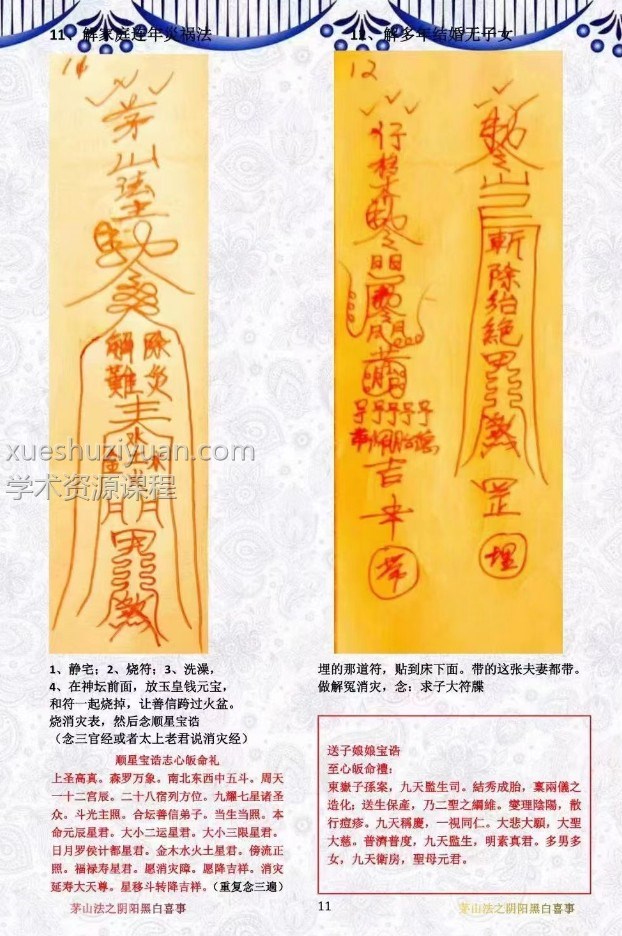 11、解家庭连年灾祸法
12、解多年结婚无子女
14
茅
山
法
主
敕
令
解 除
難 災
水
火
木
金
月 月
罡
煞
12
敕
令
斬
除
絕
罡
煞
罡
埋
敕
令
日 日
月
子子子子子
吉
帶
xueshuziyuan.com
学术资源课程
1、静宅；2、烧符；3、洗澡，
4、在神坛前面，放玉皇钱元宝，
和符一起烧掉，让善信跨过火盆。
烧消灾表，然后念顺星宝诰
（念三官经或者太上老君说消灾经）
顺星宝诰志心皈命礼
上圣高真。森罗万象。南北东西中五斗。周天
一十二宫辰。二十八宿列方位。九耀七星诸圣
众。斗光主照。合坛善信弟子。当生当照。本
命元辰星君。大小二运星君。大小三限星君。
日月罗侯计都星君。金木水火土星君。傍流正
照。福禄寿星君。愿消灾障。愿降吉祥。消灾
延寿大天尊。星移斗转降吉祥。（重复念三遍）
埋的那道符，贴到床下面。带的这张夫妻都带。
做解冤消灾，念：求子大符牒
送子娘娘宝诰
至心皈命禮：
東嶽子孫案，九天監生司。結秀成胎，稟兩儀之
造化；送生保產，乃二聖之綱維。燮理陰陽，散
行痘疹。九天稱慶，一視同仁。大悲大願，大聖
大慈。普濟普度，九天監生，明素真君。多男多
女，九天衛房，聖母元君。
茅山法之阴阳黑白喜事
11
茅山法之阴阳黑白喜事